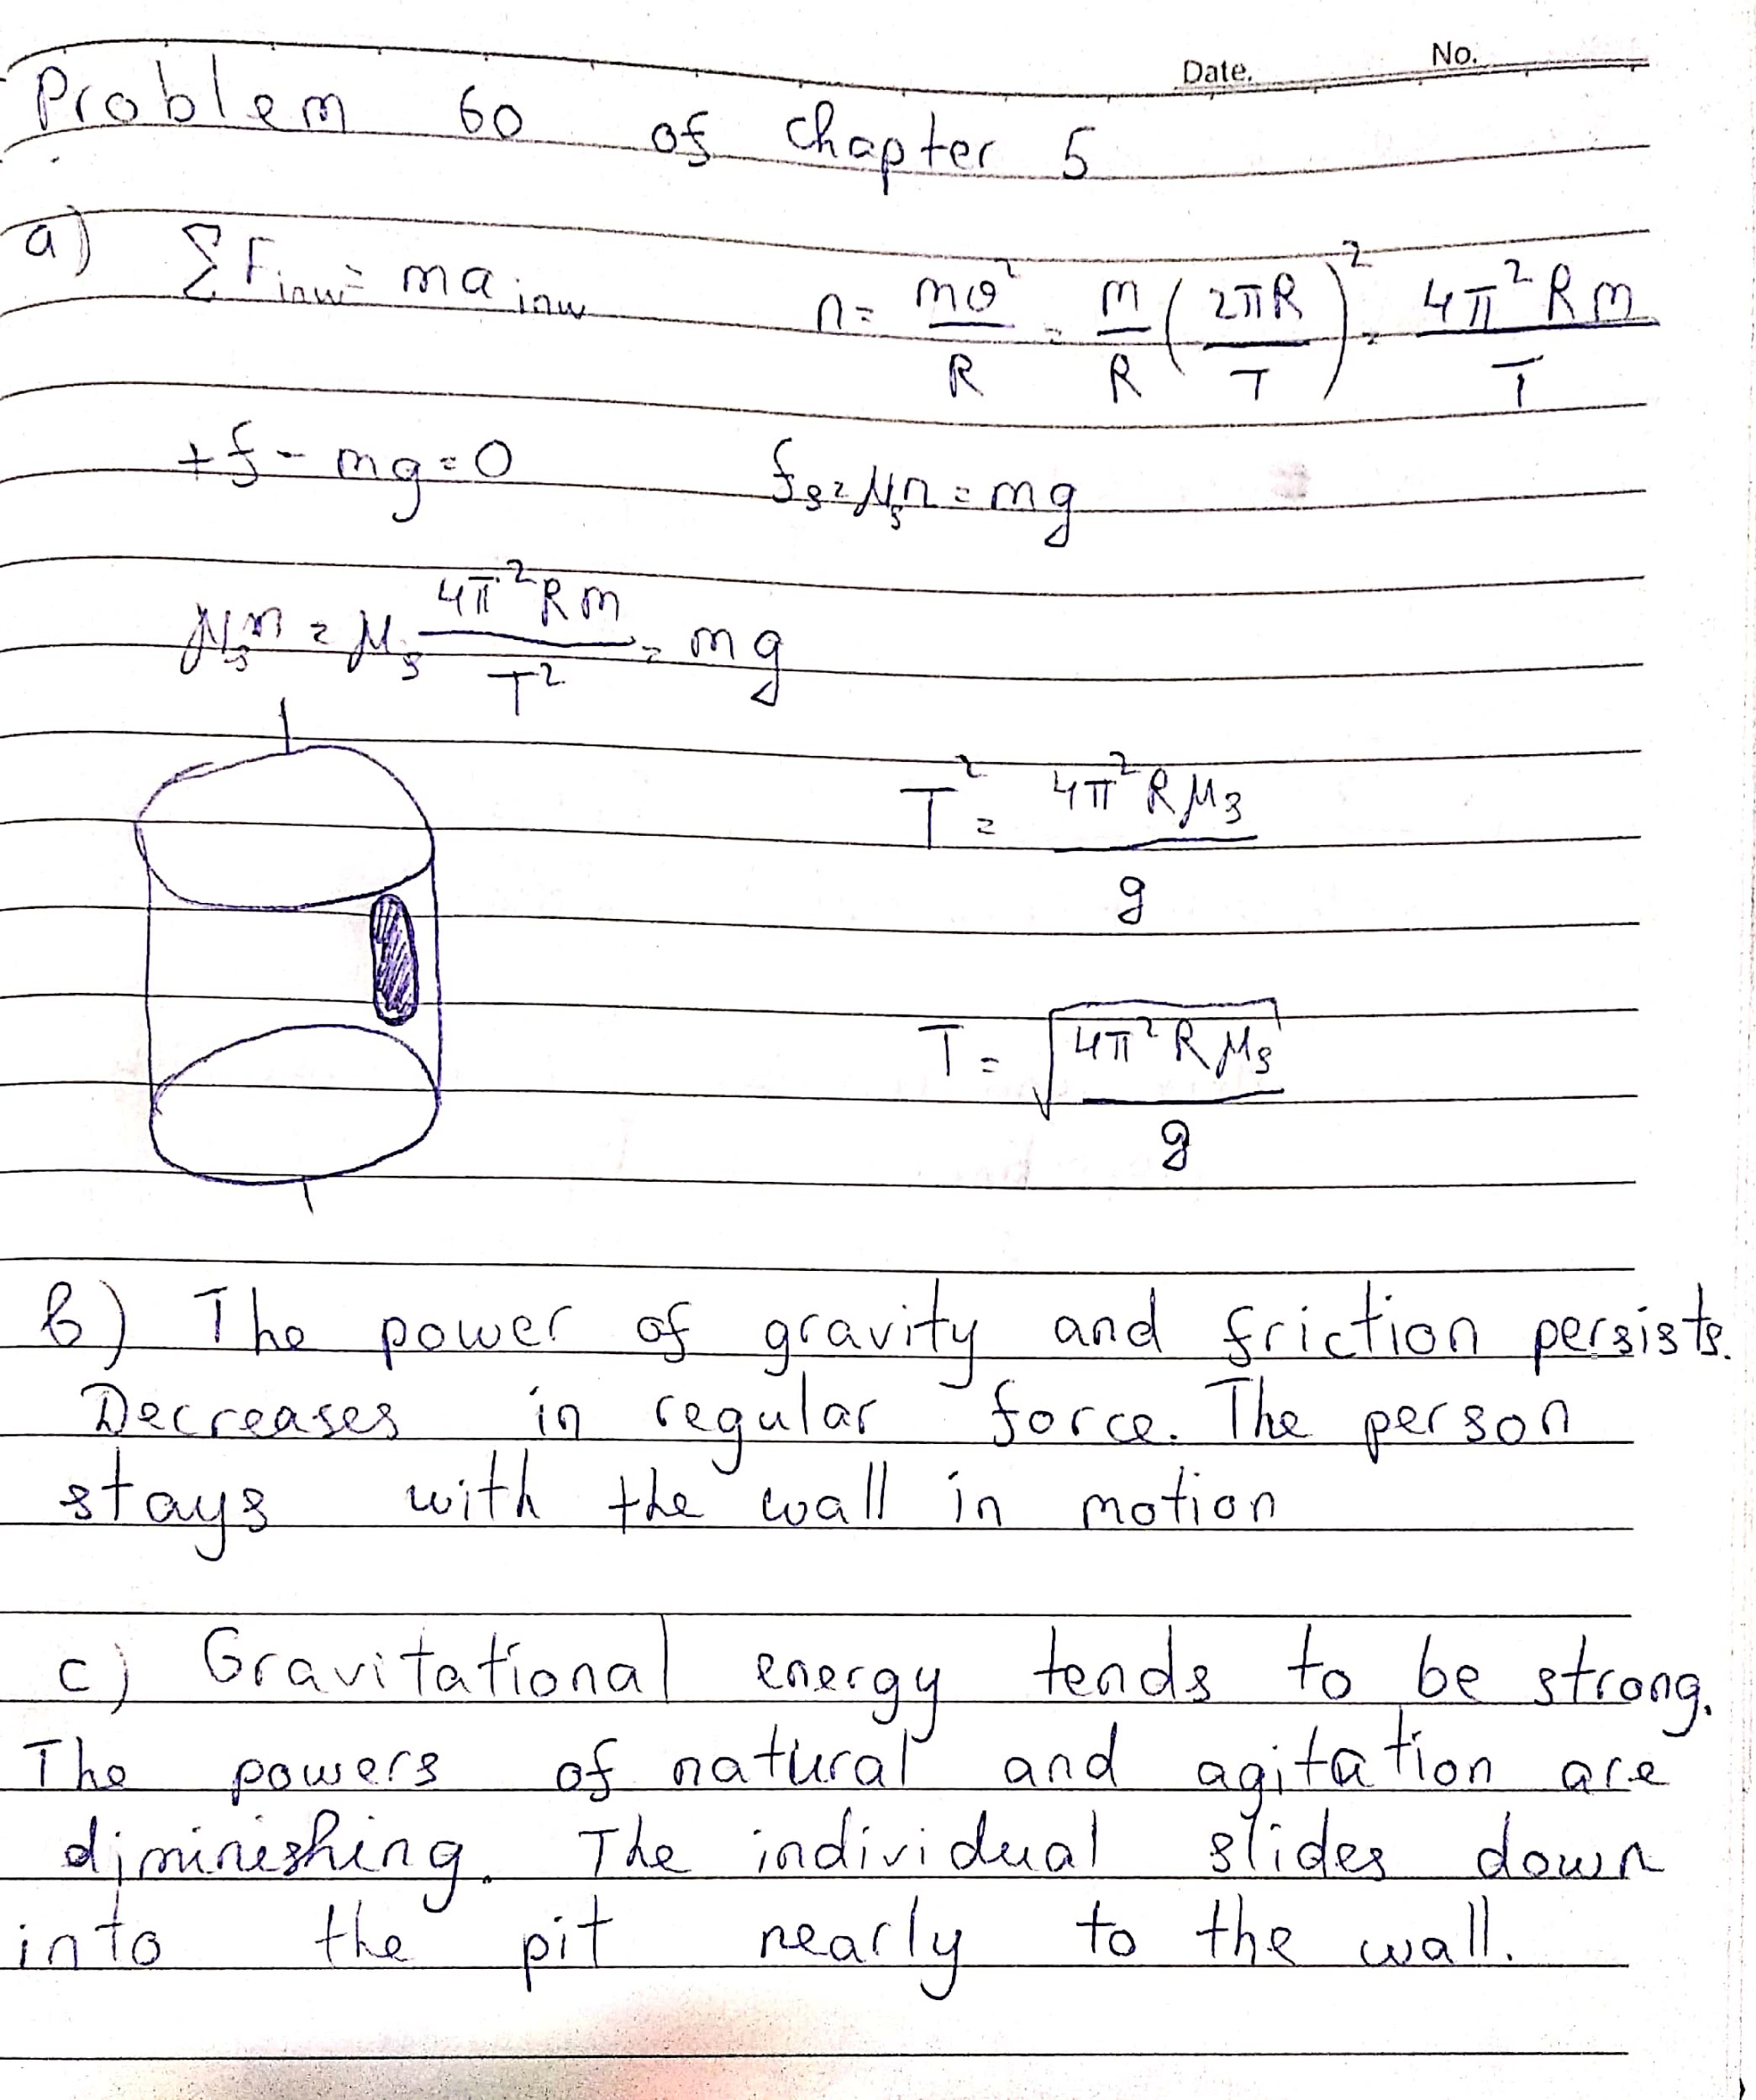 Date. No.
Problem 60 of chapter 5
a) ΣF inw = ma inw n = mv²/R = m/R (2πR/T)² = 4π²Rm/T
+f - mg = 0 fs = μs n = mg
μs n = μs 4π²Rm/T² = mg
T² = 4π²Rμs/g
T = √(4π²Rμs/g)
b) The power of gravity and friction persists.
Decreases in regular force. The person
stays with the wall in motion
c) Gravitational energy tends to be strong.
The powers of natural and agitation are
diminishing. The individual slides down
into the pit nearly to the wall.